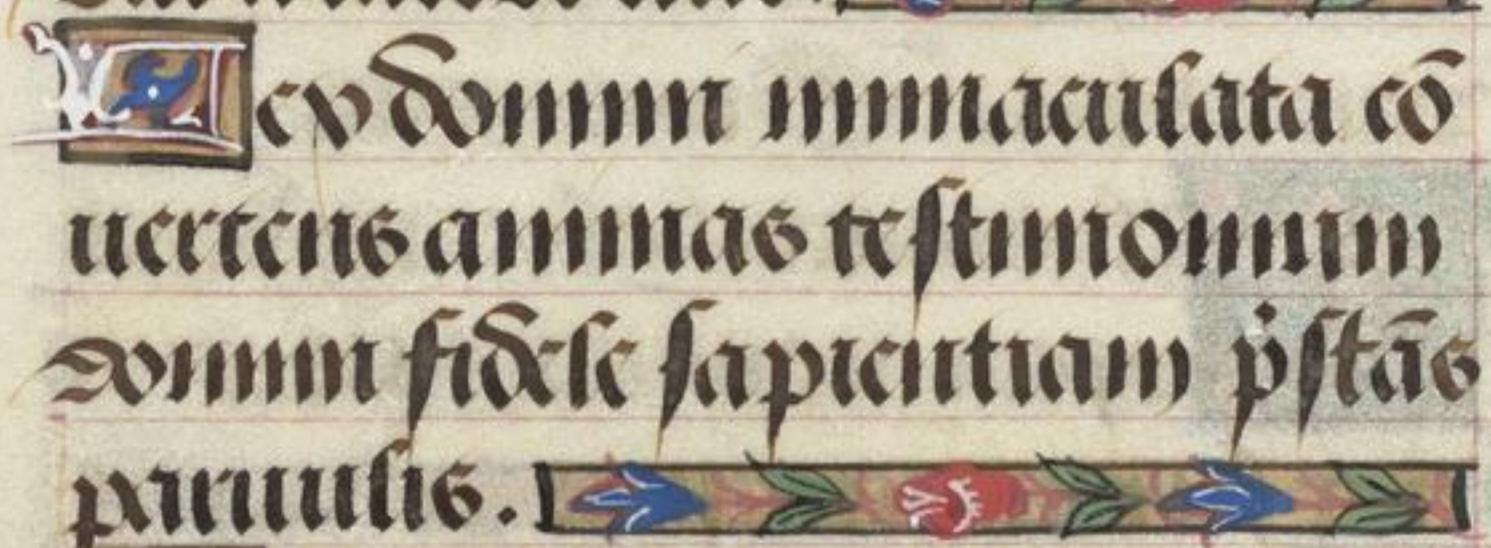 Lex domini immaculata cō
uertens animas testimonium
domini fidele sapientiam p̄stās
paruulis.